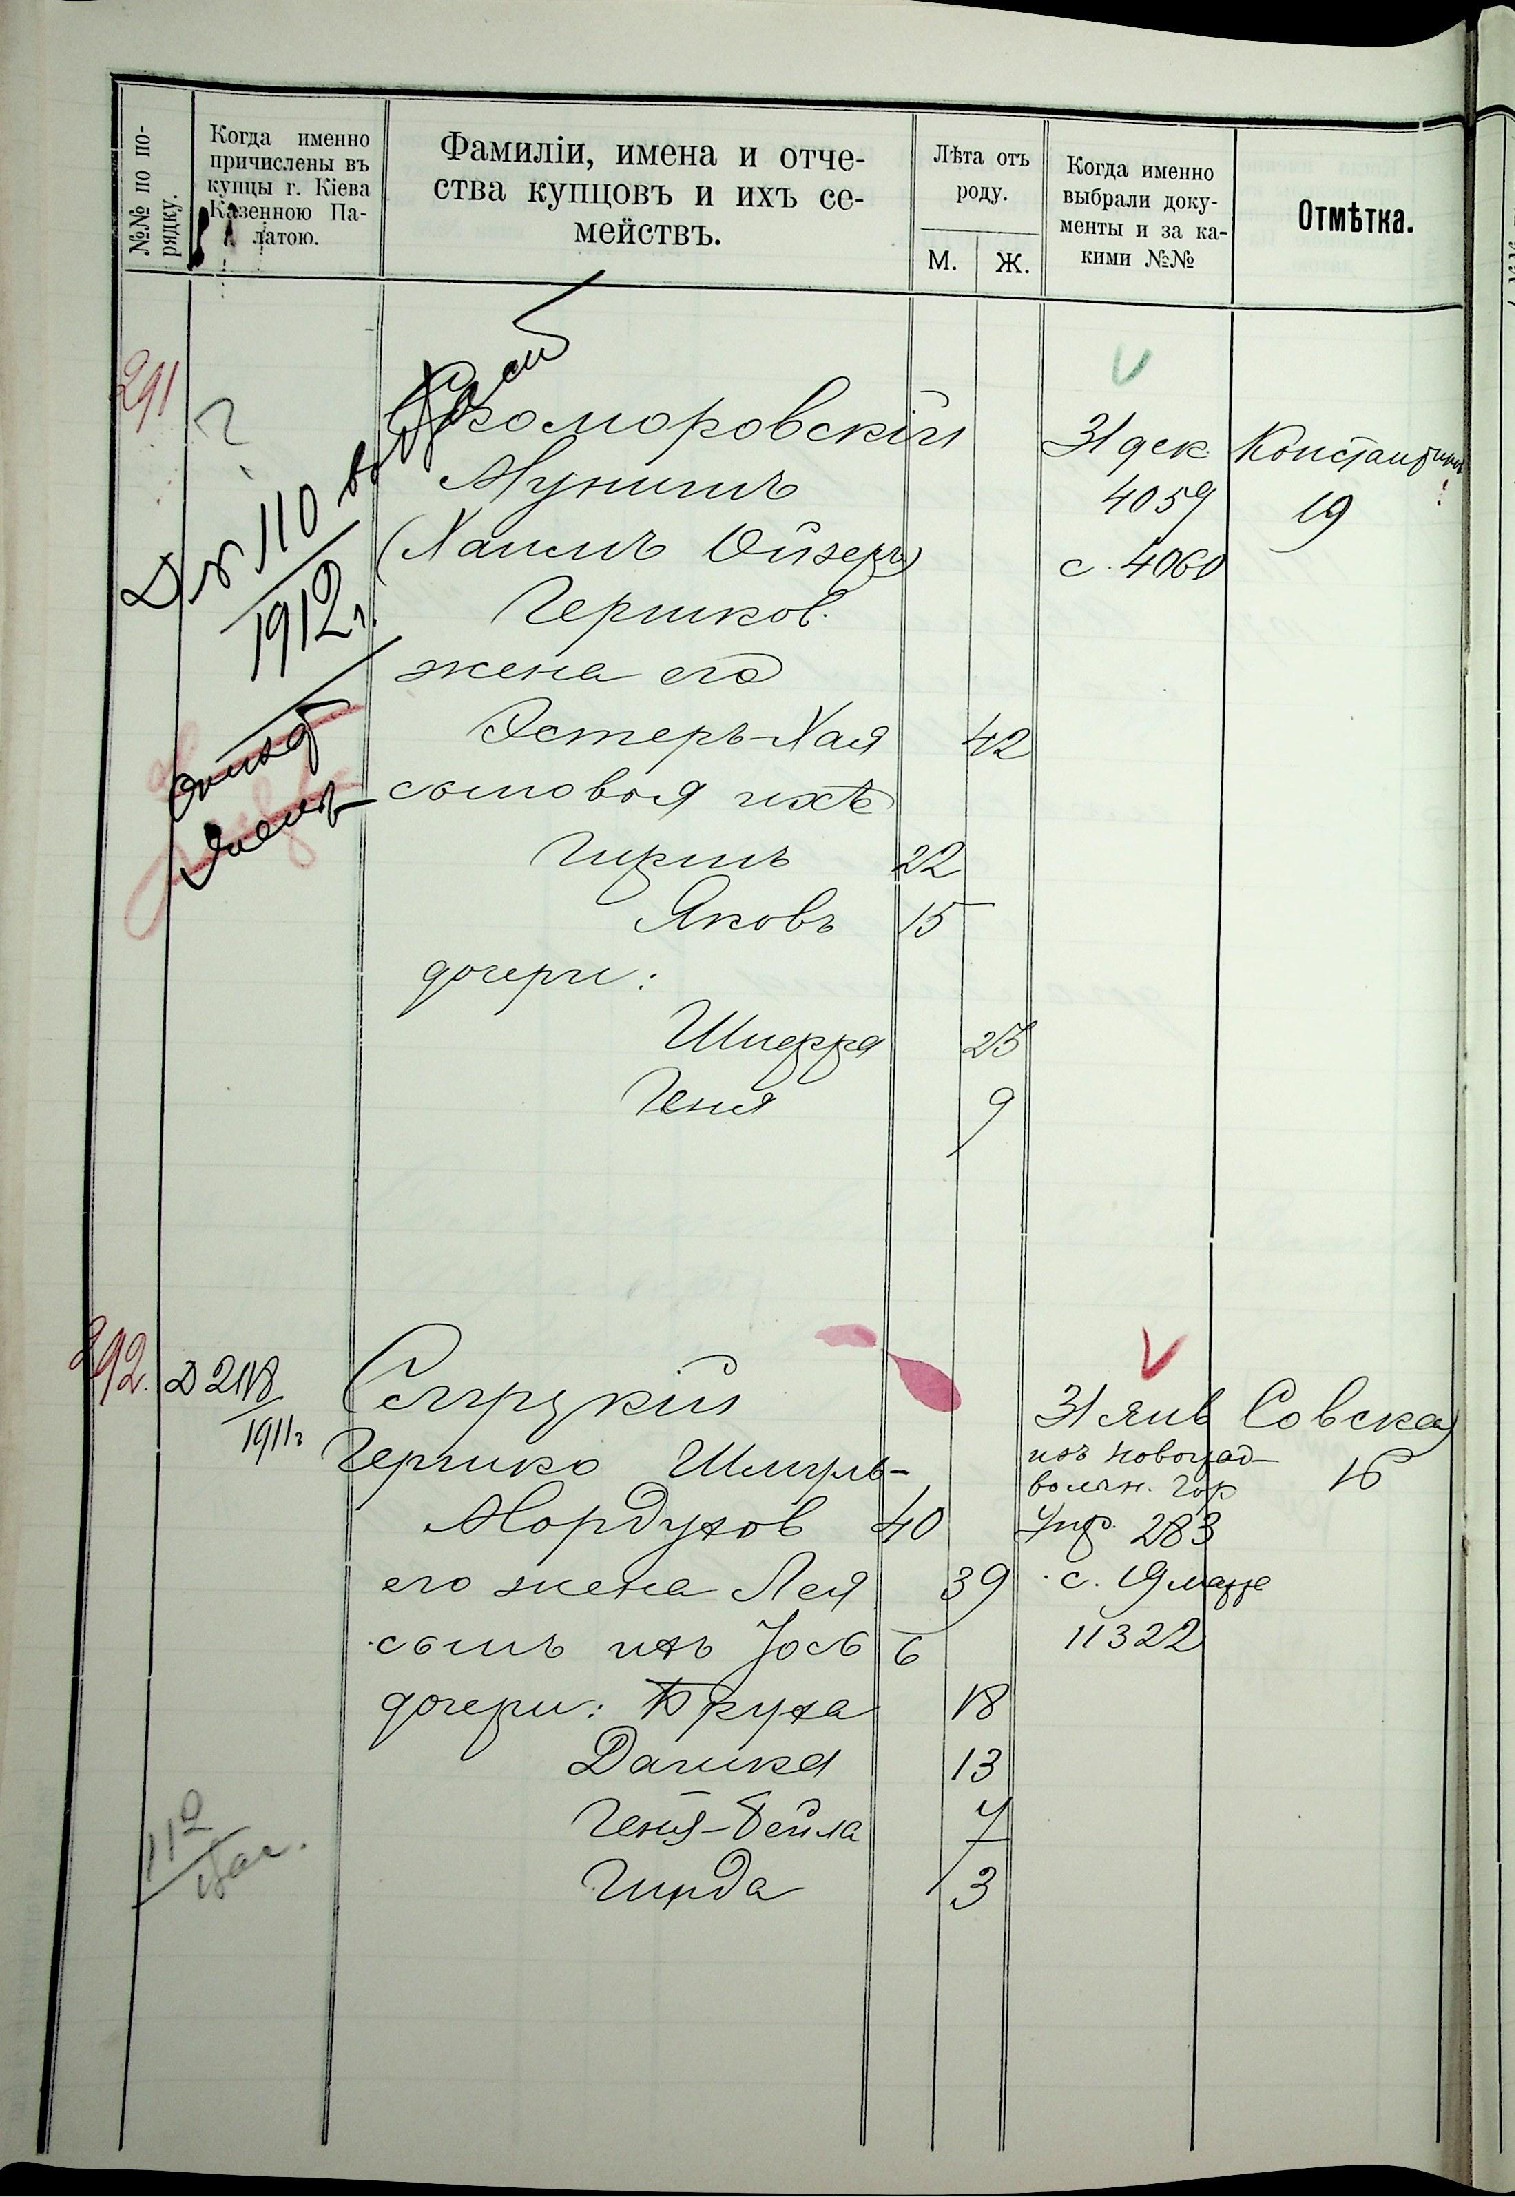 №№ по по-
рядку.
Когда именно
причислены въ
купцы г. Кіева
Казенною Па-
латою.
Фамиліи, имена и отче-
ства купцовъ и ихъ се-
мействъ.
Лѣта отъ
роду.
М.
Ж.
Когда именно
выбрали доку-
менты и за ка-
кими №№
Отмѣтка.
291
?
Д № 110
1912 г.
Скоморовскій
Мунишъ
(Хаимъ Ойзеръ)
Гершков.
жена его
Эстеръ-Хая 42
сыновья ихъ
Гиршъ 22
Яковъ 15
дочери:
Шифра 23
Геня 9
V
31 дек.
4059
с. 4060
Константин
19
292.
Д 218
1911 г
Сягрускій
Гершко Шмуль-
Мордухов 40
его жена Лея 39
сынъ ихъ Іось 6
дочери: Бруха 18
Дашка 13
Геня-Бейла 7
Гинда 3
V
31 янв
изъ Новоград
волын. Гор
Упр. 283
с. 19 марта
11322
Совская
16
112